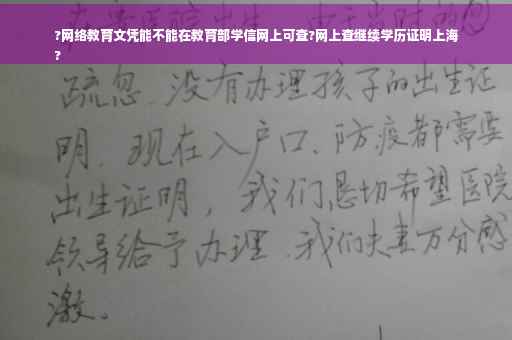 ?网络教育文凭能不能在教育部学信网上可查?网上查继续学历证明上海
?
疏忽、没有办理孩子的出生证
明。现在入户口、防疫都需要
出生证明，我们恳切希望医院
领导给予办理、我们夫妻万分感
激。